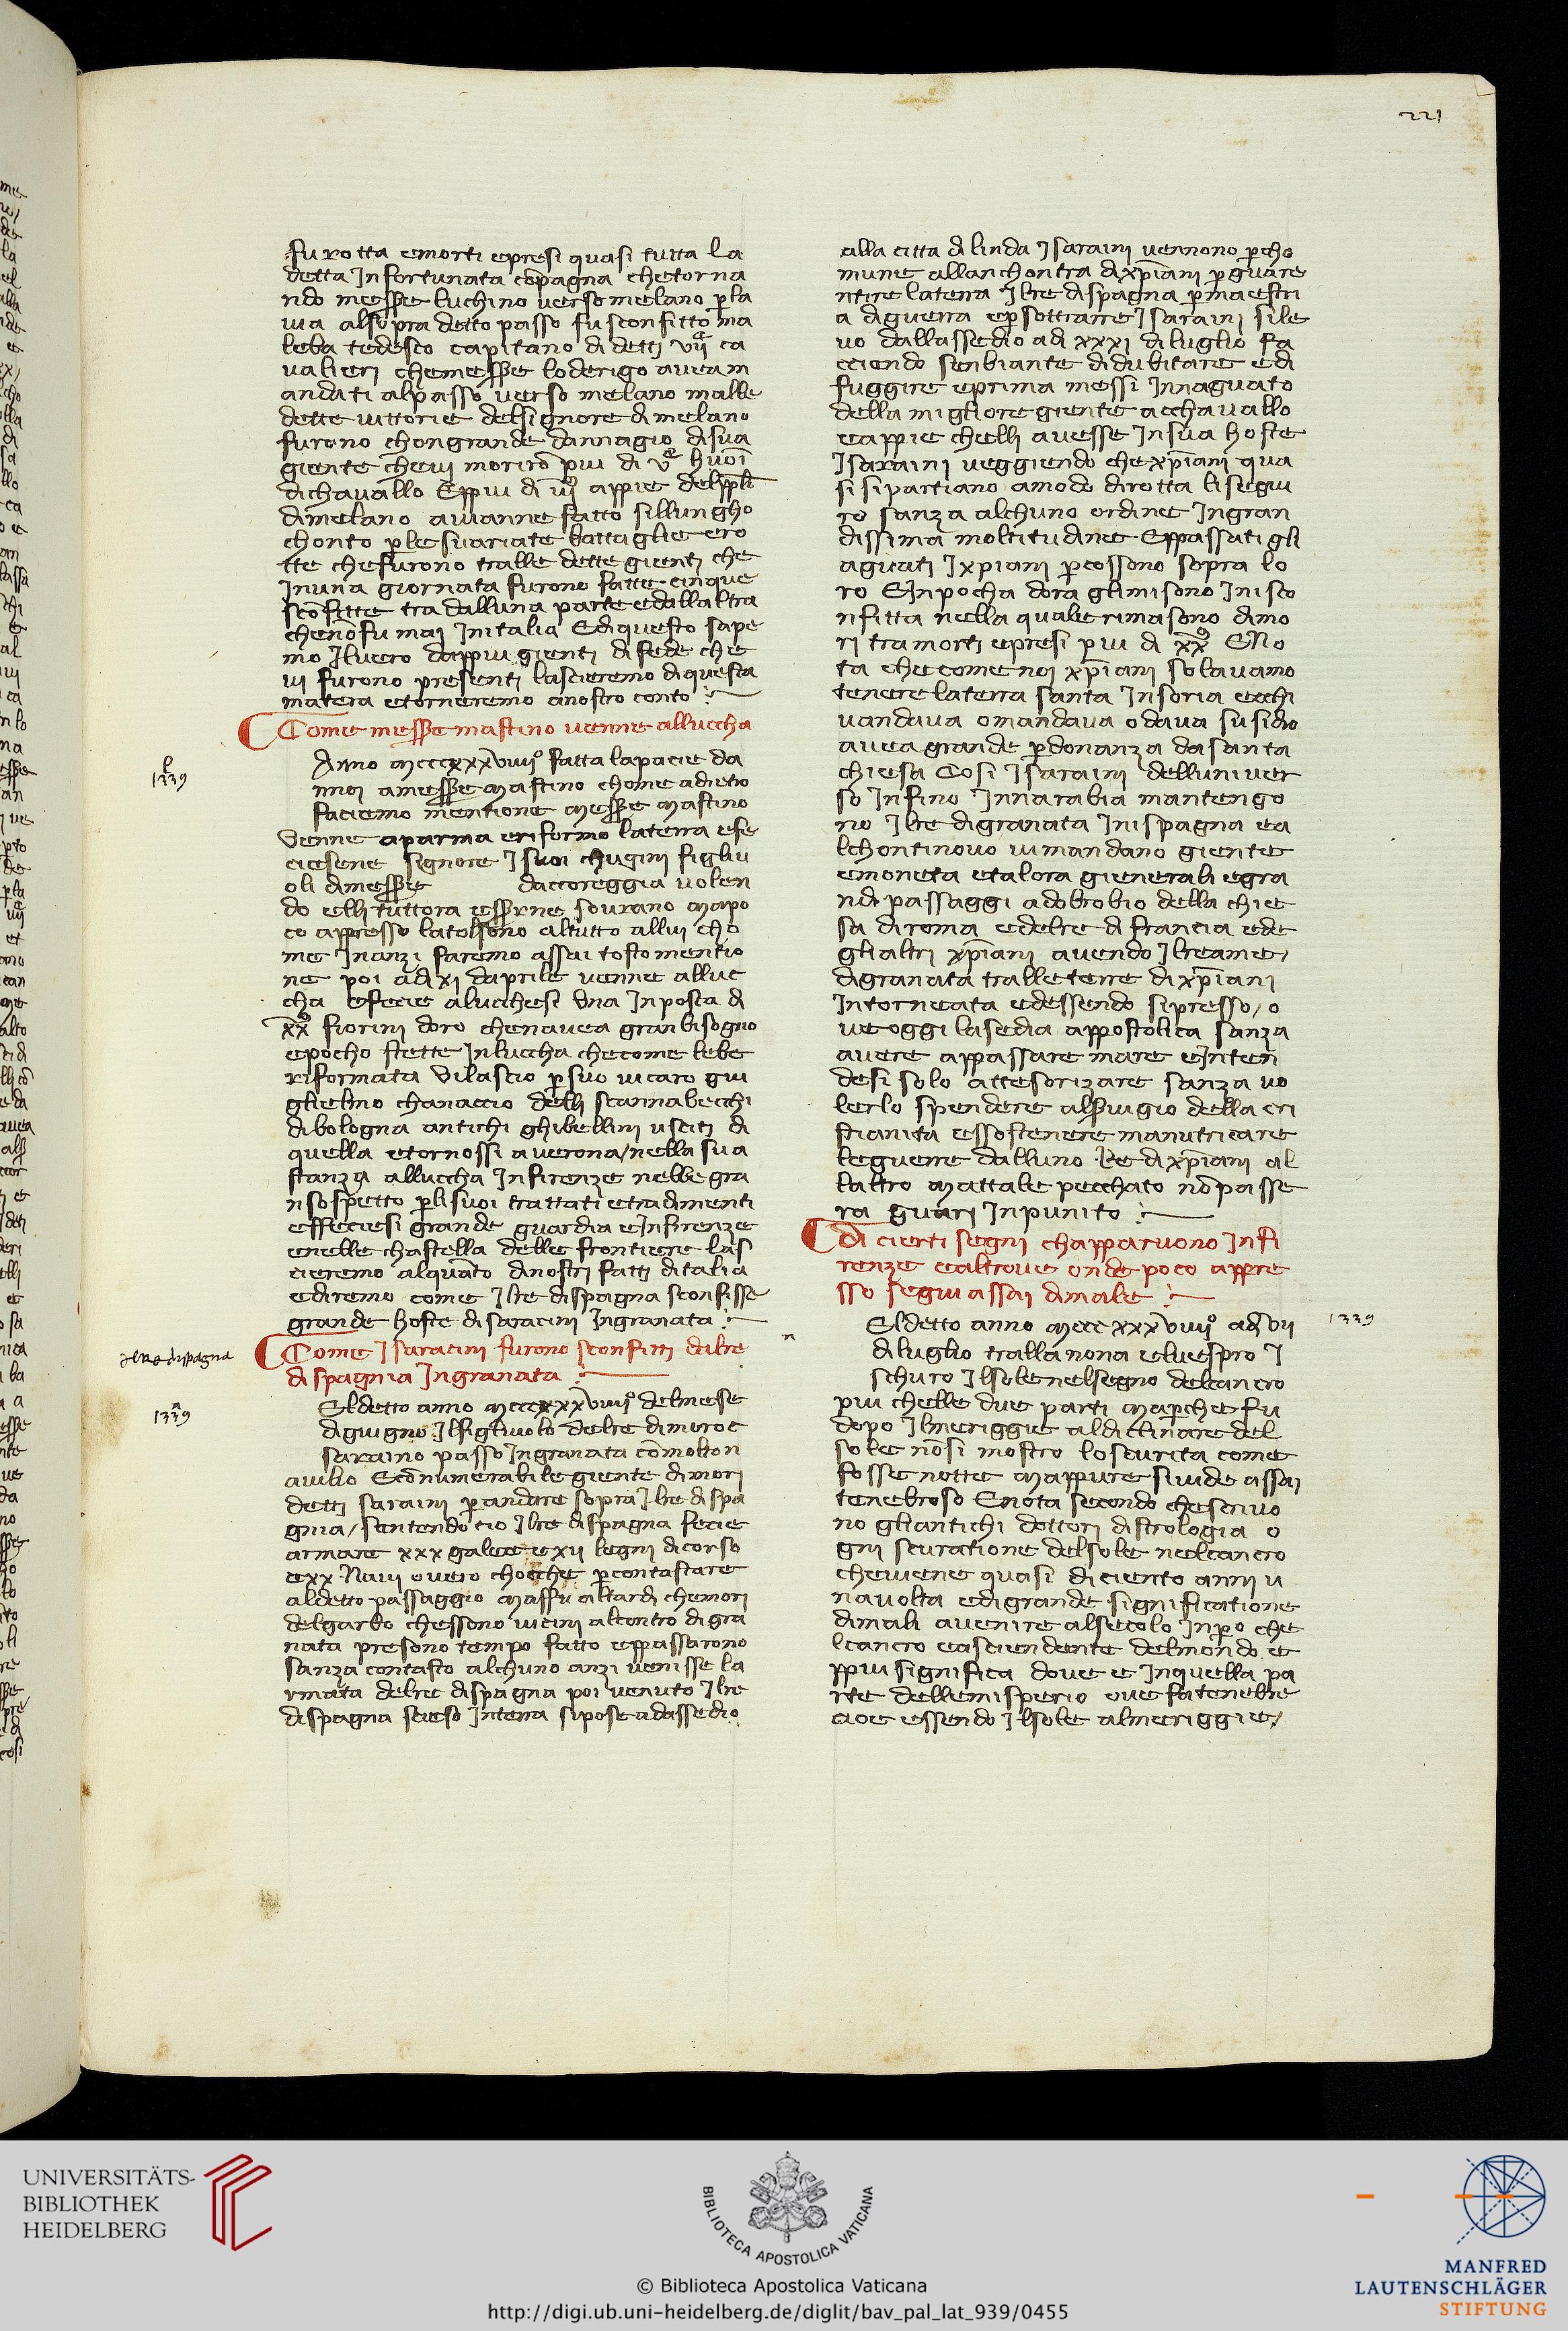 221
fu rotta emorti epresi quasi tutta la
detta Infortunata cōpagna chetorna
ndo messe luchino uerso melano ꝑ la
uia alsopra detto passo fu sconfitto ma
leba tedesco capitano di detti vij ca
ualieri chemesse loderigo aueam
andati alpasso uerso melano malle
dette uittorie delsignore di melano
furono chongrande dannagio di sua
giente cheui moriro piu di v huoī
dichauallo Eppiu di iij appie
dimelano auianne fatto sillungho
chonto ꝑ le suariate battaglie ero
tte chefurono tralle dette gienti che
Inuna giornata furono fatte cinque
scōfitte tra dalluna parte edallaltra
chenōfu mai Initalia Edi questo sape
mo Iluero dappiu gienti di fede che
ui furono presenti lascieremo di questa
matera etorneremo anostro conto
Come messe mastino uenne alluccha
1339
Anno mcccxxxviiijº fatta lapacie da
nnoi amesse mastino chome adietro
faciemo mentione messe mastino
Venne aparma eriformo laterra efe
ciesene signore I suoi chugini figliu
oli dimesse dacoreggia uolen
do elli tuttora esserne sourano mapo
co appresso latolsono altutto allui cho
me Inanzi faremo assai tosto mentio
ne poi adi xi daprile uenne alluc
cha efecie alucchesi Vna Inposta di
xx fiorini doro chenauea gran bisogno
epocho stette Inluccha checome lebe
riformata Vilascio ꝑ suo uicaro gui
glielmo chanaccio delli scannabecchi
dibologna antichi ghibellini usciti di
quella etornossi auerona/nella sua
stanza alluccha Infirenze nebbe gra
nsospetto ꝑ li suoi trattati etradimenti
effeciesi grande guardia eInfirenze
enelle chastella delle frontiere las
cieremo alquāto dinostri fatti ditalia
ediremo come Ilre dispagna sconfisse
grande hoste di saracini Ingranata
Come I saracini furono sconfitti dalre
di spagnia Ingranata
Ilre dispagna
1339
El detto anno mcccxxxviiijº delmese
digiugno Ilfigliuolo delre dimuroc
saraino passo Ingranata cō molto n
auilio Ecōnumerabile giente dimori
detti saraini ꝑ andare sopra Ilre dispa
gnia/sentendo cio Ilre dispagna fecie
armare xxx galee exij legni di corso
exx Naui ouero chocche ꝑ contastare
aldetto passaggio Maffu altardi chemori
delgarbo chessono uicini alcontro di gra
nata presono tempo fatto eppassarono
sanza contasto alchuno anzi uenisse la
rmata delre dispagna poi uenuto Ilre
dispagna scieso Interra sipose adassedio
alla citta di linda I saraini uennono ꝑ cho
mune allanchontra dixp̄iani ꝑ guare
ntire laterra Ilre dispagna ꝑ maestri
a diguerra eꝑ sottrarre I saraini sile
uo dallassedio adi xxxi di luglio fa
cciendo senbiante di dubitare edi
fuggire eprima messi Innaguato
della migliore giente acchauallo
eappie chelli auesse Insua hoste
I saraini ueggiendo che xp̄iani qua
si sipartiano amodo dirotta li segui
ro sanza alchuno ordine Ingran
dissima moltitudine Eppassati gli
aguati I xp̄iani ꝑcossono sopra lo
ro EInpocha dora glimisono Inisco
nfitta nella quale rimasono dimo
ri tra morti epresi piu di xx Eno
ta che come noi xp̄iani solauamo
tenere laterra santa Insoria ecchi
uandaua omandaua odaua susidio
auea grande ꝑdonanza dasanta
chiesa Cosi I saraini delluniuer
so Infino Innarabia mantengo
no Ilre digranata Inispagna ea
lchontinouo uimandano giente
emoneta etalora gienerali egra
ndi passaggi adobrobio della chie
sa diroma edelre di francia ede
glialtri xp̄iani auendo Ilreame/
digranata tralle terre dixp̄iani
Intorneata edessendo sipresso/o
ue oggi lasedia appostolica sanza
auere appassare mare eInten
desi solo attesorizzare sanza uo
lerlo spendere alseruigio della cri
stianita essostenere manutricare
leguerre dalluno Re dixp̄iani al
laltro Mattale pecchato nō passe
ra guari Inpunito
Di cierti segni chapparuono Infi
renze ealtroue onde poco appre
sso segui assai dimale
1339
El detto anno mcccxxxviiijº adi vij
diluglio tralla nona eluespro I
schuro Ilsole nelsegno delcancro
piu chelle due parti Maꝑche fu
dopo Ilmeriggie aldiclinare del
sole nōsi mostro loscurita come
fosse notte Mappure siuide assai
tenebroso Enota secondo che scriuo
no gliantichi dottori distrologia o
gni scuratione delsole nelcancro
cheuiene quasi di ciento anni u
nauolta edigrande significatione
dimali auenire alsecolo Inꝑo che
lcancro easciendente delmondo e
ppiu significa doue e Inquella pa
rte dellemisperio oue fa tenebre
cioe essendo Ilsole almeriggie/
UNIVERSITÄTS-
BIBLIOTHEK
HEIDELBERG
BIBLIOTECA APOSTOLICA VATICANA
© Biblioteca Apostolica Vaticana
http://digi.ub.uni-heidelberg.de/diglit/bav_pal_lat_939/0455
MANFRED
LAUTENSCHLÄGER
STIFTUNG